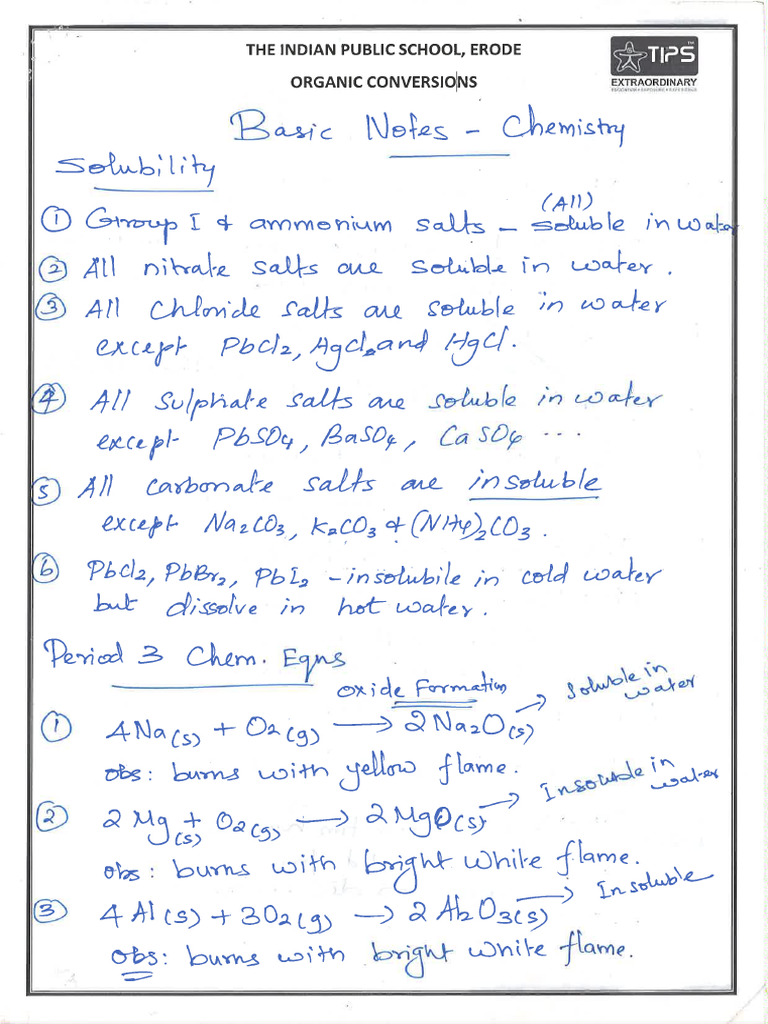 THE INDIAN PUBLIC SCHOOL, ERODE
ORGANIC CONVERSIONS
TIPS
EXTRAORDINARY
Basic Notes - Chemistry
Solubility
(All)
① Group I & ammonium salts - soluble in water
② All nitrate salts are soluble in water.
③ All chloride salts are soluble in water
except PbCl2, AgCl and HgCl.
④ All sulphate salts are soluble in water
except PbSO4, BaSO4, CaSO4 ...
⑤ All carbonate salts are insoluble
except Na2CO3, K2CO3 & (NH4)2CO3.
⑥ PbCl2, PbBr2, PbI2 - insolubile in cold water
but dissolve in hot water.
Period 3 Chem. Eqns
Oxide Formation
① 4Na(s) + O2(g) → 2Na2O(s) → Soluble in water
obs: burns with yellow flame.
② 2Mg(s) + O2(g) → 2MgO(s) → Insoluble in water
obs: burns with bright white flame.
③ 4Al(s) + 3O2(g) → 2Al2O3(s) → Insoluble
obs: burns with bright white flame.